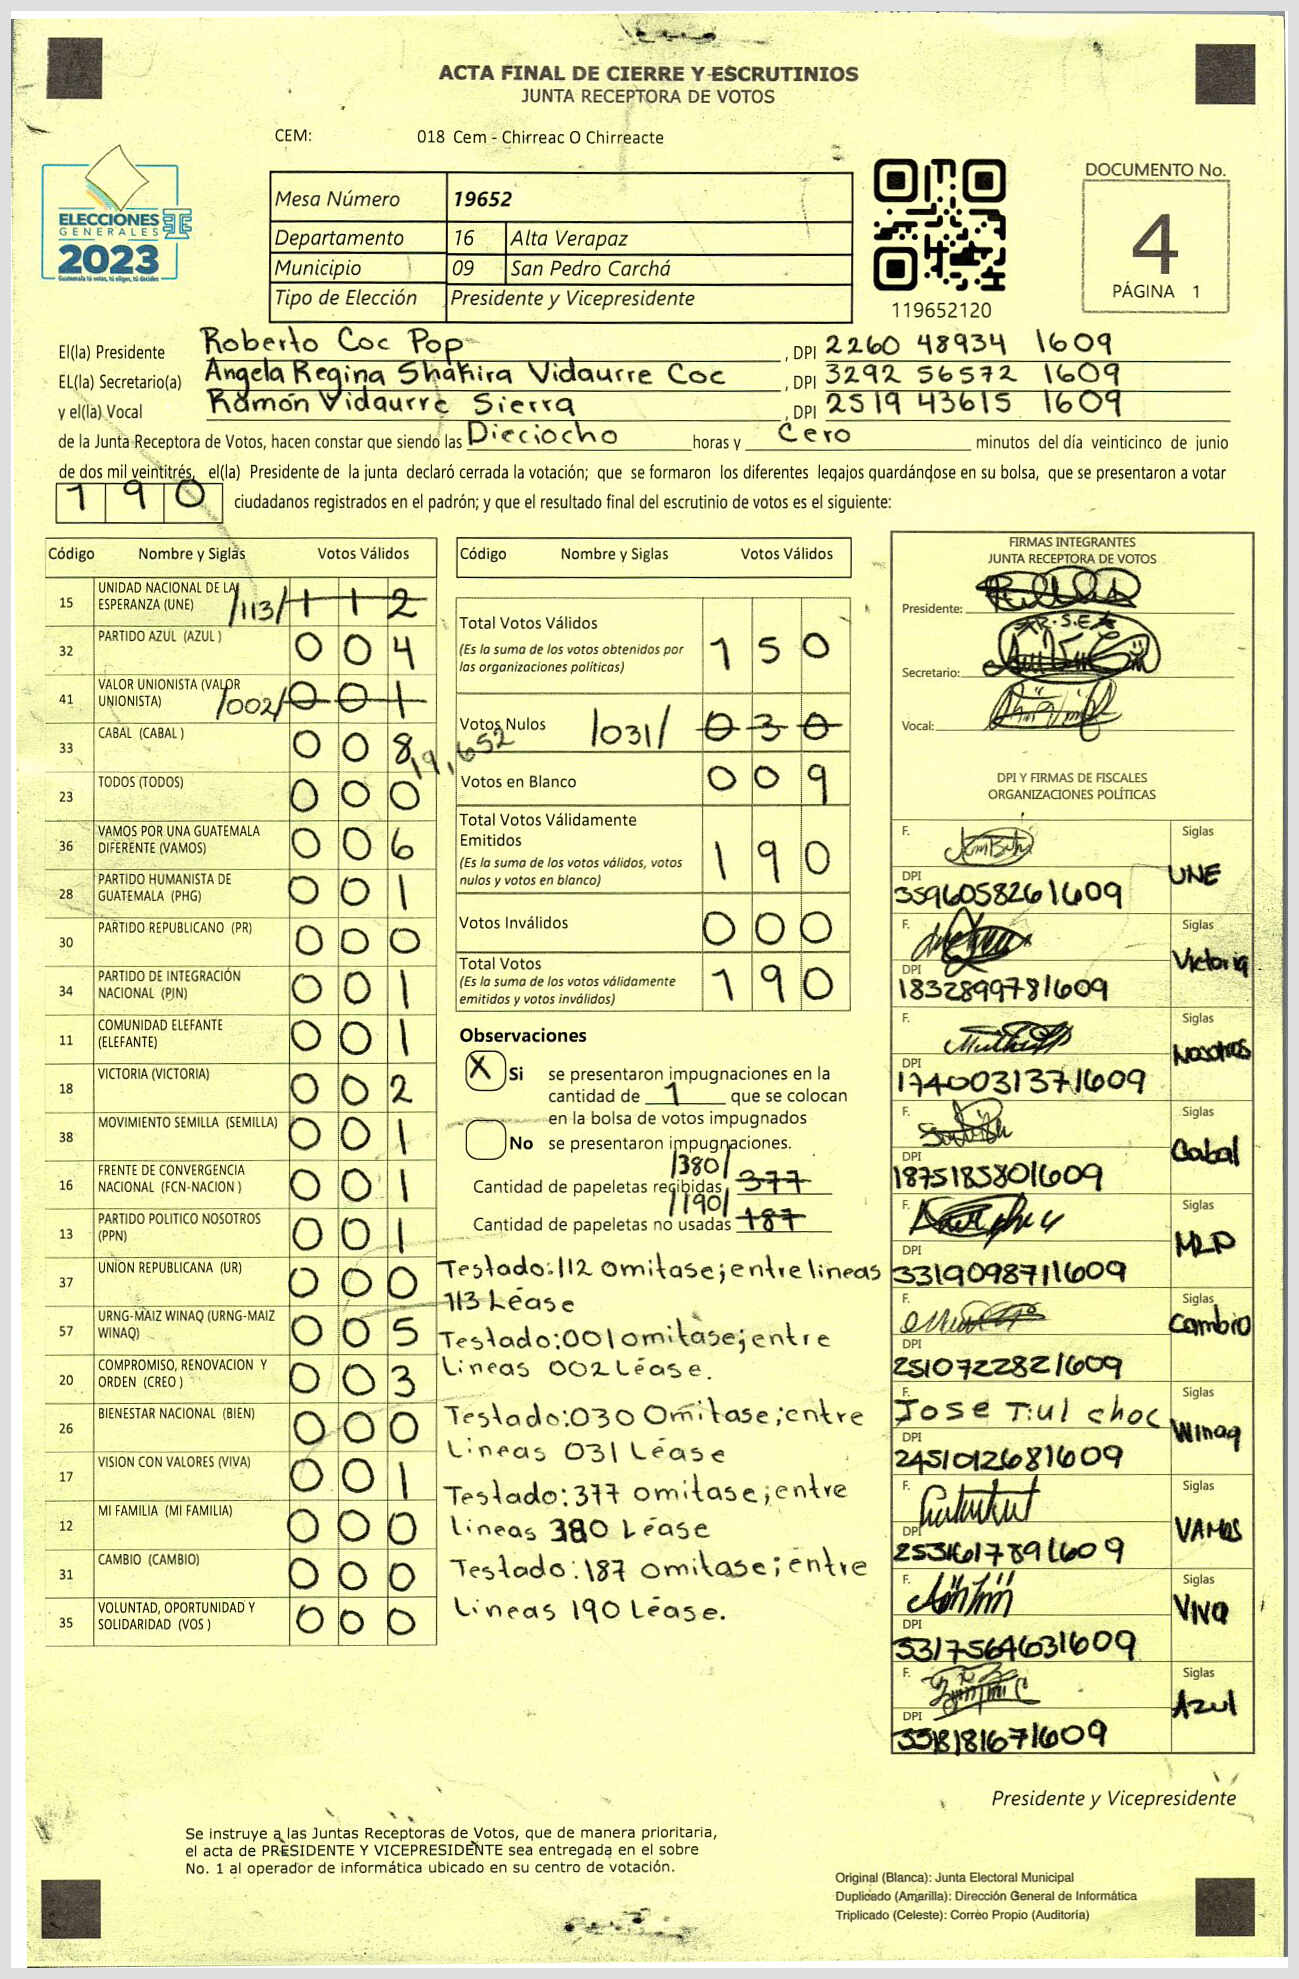 ACTA FINAL DE CIERRE Y ESCRUTINIOS
JUNTA RECEPTORA DE VOTOS
CEM: 018 Cem - Chirreac O Chirreacte
ELECCIONES
GENERALES
2023
Guatemala tú votas, tú eliges, tú decides
Mesa Número 19652
Departamento 16 Alta Verapaz
Municipio 09 San Pedro Carchá
Tipo de Elección Presidente y Vicepresidente
119652120
DOCUMENTO No.
4
PÁGINA 1
El(la) Presidente Roberto Coc Pop, DPI 2260 48934 1609
EL(la) Secretario(a) Angela Regina Shakira Vidaurre Coc, DPI 3292 56572 1609
y el(la) Vocal Ramón Vidaurre Sierra, DPI 2519 43615 1609
de la Junta Receptora de Votos, hacen constar que siendo las Dieciocho horas y Cero minutos del día veinticinco de junio
de dos mil veintitrés, el(la) Presidente de la junta declaró cerrada la votación; que se formaron los diferentes legajos guardándose en su bolsa, que se presentaron a votar
190 ciudadanos registrados en el padrón; y que el resultado final del escrutinio de votos es el siguiente:
Código Nombre y Siglas Votos Válidos
15 UNIDAD NACIONAL DE LA
ESPERANZA (UNE) /113/ 112
32 PARTIDO AZUL (AZUL ) 004
41 VALOR UNIONISTA (VALOR
UNIONISTA) /002/ 001
33 CABAL (CABAL ) 008
19,652
23 TODOS (TODOS) 000
36 VAMOS POR UNA GUATEMALA
DIFERENTE (VAMOS) 006
28 PARTIDO HUMANISTA DE
GUATEMALA (PHG) 001
30 PARTIDO REPUBLICANO (PR) 000
34 PARTIDO DE INTEGRACIÓN
NACIONAL (PIN) 001
11 COMUNIDAD ELEFANTE
(ELEFANTE) 001
18 VICTORIA (VICTORIA) 002
38 MOVIMIENTO SEMILLA (SEMILLA) 001
16 FRENTE DE CONVERGENCIA
NACIONAL (FCN-NACION ) 001
13 PARTIDO POLITICO NOSOTROS
(PPN) 001
37 UNION REPUBLICANA (UR) 000
57 URNG-MAIZ WINAQ (URNG-MAIZ
WINAQ) 005
20 COMPROMISO, RENOVACION Y
ORDEN (CREO ) 003
26 BIENESTAR NACIONAL (BIEN) 000
17 VISION CON VALORES (VIVA) 001
12 MI FAMILIA (MI FAMILIA) 000
31 CAMBIO (CAMBIO) 000
35 VOLUNTAD, OPORTUNIDAD Y
SOLIDARIDAD (VOS ) 000
Código Nombre y Siglas Votos Válidos
Total Votos Válidos 150
(Es la suma de los votos obtenidos por
las organizaciones políticas)
Votos Nulos /031/ 030
Votos en Blanco 009
Total Votos Válidamente
Emitidos 190
(Es la suma de los votos válidos, votos
nulos y votos en blanco)
Votos Inválidos 000
Total Votos 190
(Es la suma de los votos válidamente
emitidos y votos inválidos)
Observaciones
X Si se presentaron impugnaciones en la
cantidad de 1 que se colocan
en la bolsa de votos impugnados
No se presentaron impugnaciones.
Cantidad de papeletas recibidas /380/ 377
Cantidad de papeletas no usadas /190/ 187
Testado:112 omitase; entre lineas
113 Léase
Testado:001 omitase; entre
Lineas 002 Léase.
Testado:030 Omitase; entre
Lineas 031 Léase
Testado:377 omitase; entre
lineas 380 Léase
Testado:187 omitase; entre
Lineas 190 Léase.
FIRMAS INTEGRANTES
JUNTA RECEPTORA DE VOTOS
Presidente:
Secretario:
Vocal:
DPI Y FIRMAS DE FISCALES
ORGANIZACIONES POLÍTICAS
F. Siglas
DPI UNE
3596058261609
F. Siglas
DPI Victoria
1832899781609
F. Siglas
DPI Nosotros
1740031371609
F. Siglas
DPI Cabal
1875185801609
F. Siglas
DPI MLP
3319098711609
F. Siglas
DPI Cambio
2510722821609
F. Jose Tiul choc Siglas
DPI Winaq
2451012681609
F. Siglas
DPI VAMOS
2531617891609
F. Siglas
DPI VIVA
3317564631609
F. Siglas
DPI Azul
3318181671609
Presidente y Vicepresidente
Se instruye a las Juntas Receptoras de Votos, que de manera prioritaria,
el acta de PRESIDENTE Y VICEPRESIDENTE sea entregada en el sobre
No. 1 al operador de informática ubicado en su centro de votación.
Original (Blanca): Junta Electoral Municipal
Duplicado (Amarilla): Dirección General de Informática
Triplicado (Celeste): Correo Propio (Auditoría)